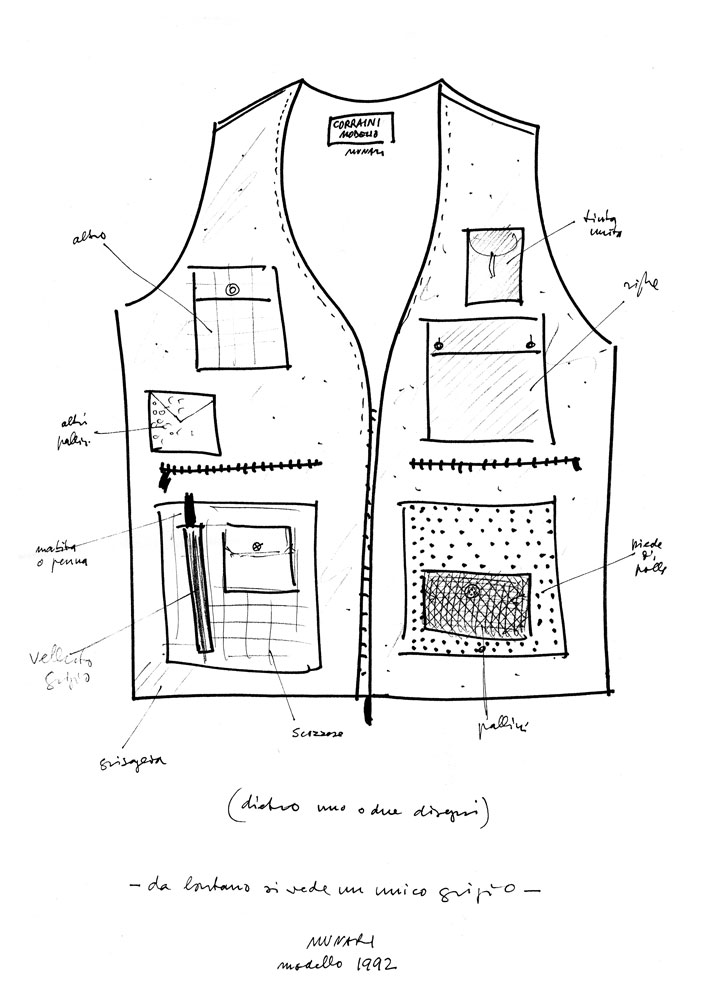 CORRAINI
MODELLO
MUNARI
tinta
unita
altro
righe
altri
pallini
matita
o penna
piede
di
pollo
velluto
grigio
scozzese
pallini
grisaglia
(dietro uno o due disegni)
– da lontano si vede un unico grigio –
MUNARI
modello 1992